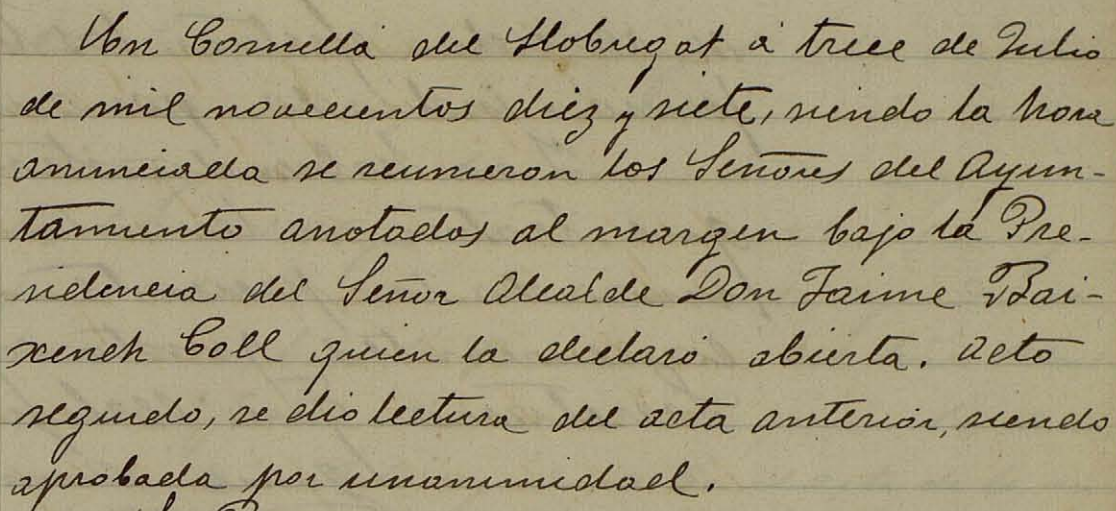 En Cornellá del Llobregat á trece de Julio
de mil novecientos diez y siete, siendo la hora
anunciada se reunieron los Señores del Ayun-
tamiento anotados al margen bajo la Pre-
sidencia del Señor Alcalde Don Jaime Bai-
xench Coll quien la declaró abierta. Acto
seguido, se dio lectura del acta anterior, siendo
aprobada por unanimidad.